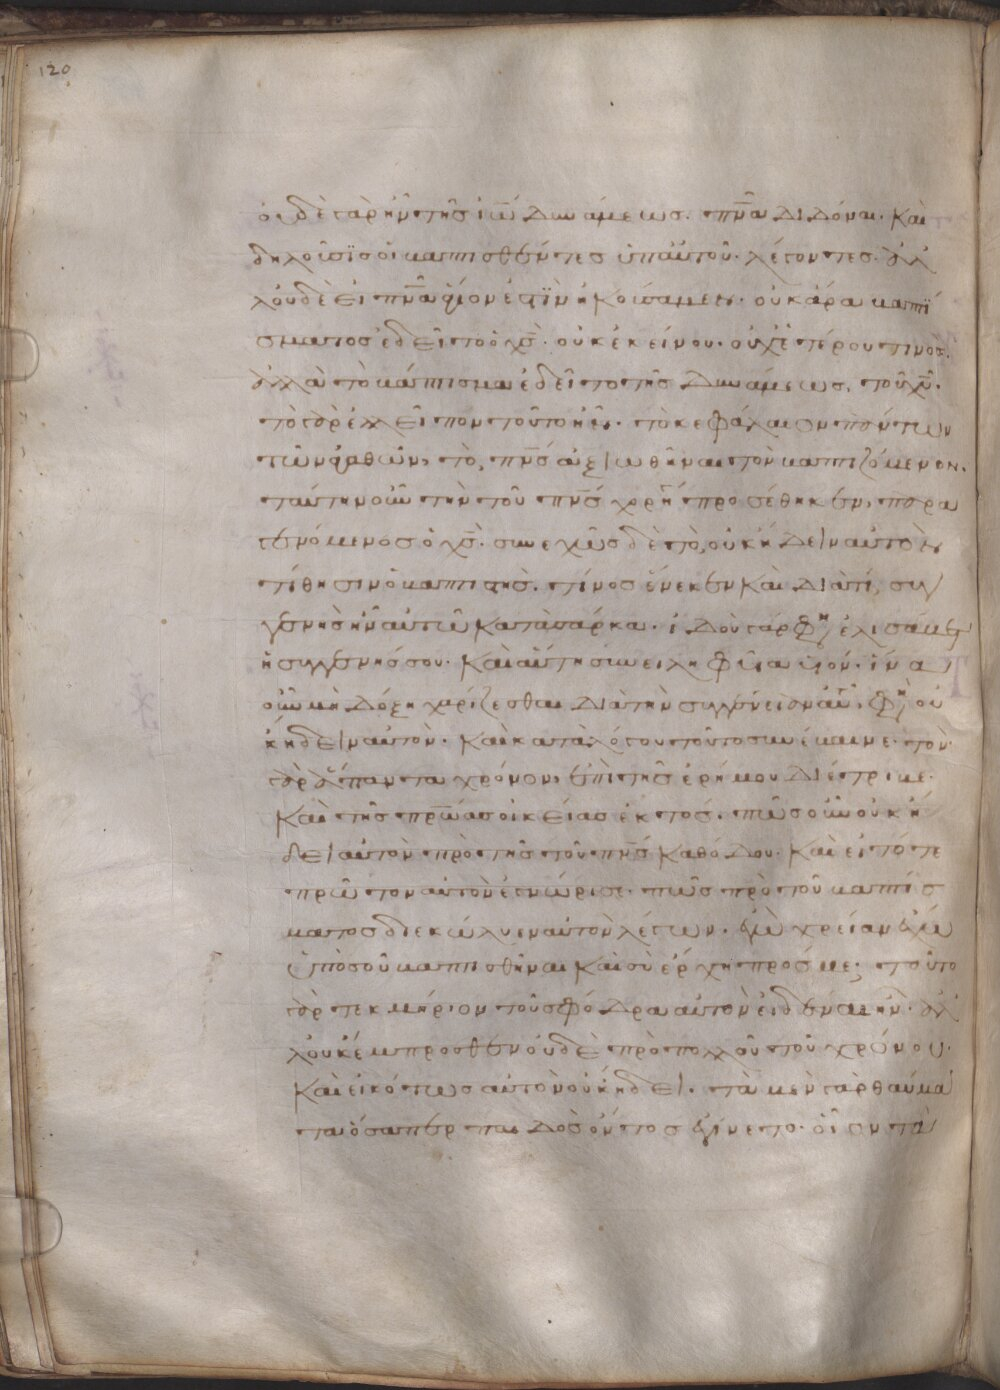 120
οὐδὲ γὰρ ἦν τῆς ἰω̅ δυνάμεως. πν̅α διδόναι. καὶ
δηλοῦσιν οἱ βαπτισθέντες ὑπ' αὐτοῦ. λέγοντες. ἀλ
λ' οὐδὲ εἰ πν̅α ἅγιον ἐστὶν ἠκούσαμεν. οὐκ ἄρα βαπτί
σματος ἐδεῖτο ὁ χ̅ς. οὐκ ἐκείνου. οὐχ ἑτέρου τινός.
ἀλλὰ τὸ βάπτισμα ἐδεῖτο τῆς δυνάμεως τοῦ χ̅υ.
τὸ γὰρ ἐλλεῖπον τοῦτο ἦν. τὸ κεφάλαιον πάντων
τῶν ἀγαθῶν, τὸ πν̅ς ἀξιωθῆναι τὸν βαπτιζόμενον.
ταύτην οὖν τὴν τοῦ πν̅ς χρ προσέθηκεν, παρα
γενόμενος ὁ χ̅ς. συνεχῶς δὲ τὸ, οὐκ ᾔδειν αὐτὸν
τίθησιν ὁ βαπτιστής. τίνος ἕνεκεν καὶ διατί, συγ
γενὴς ἦν αὐτῶ κατὰ σάρκα. ἰδοὺ γάρ φη ἐλισάβετ
ἡ συγγενής σου. καὶ αὐτὴ συνειληφυῖα υἱόν. ἵνα
οὖν μὴ δόξη χαρίζεσθαι διὰ τὴν συγγένειαν αὐ, φη οὐ
κ ᾔδειν αὐτόν. καὶ κατὰ λόγον τοῦτο συνέβαινε. τὸν
γὰρ ἅπαντα χρόνον, ἐπὶ τῆς ἐρήμου διέτριβε.
καὶ τῆς πρῴας οἰκείας ἐκτός. πῶς οὖν οὐκ ᾔ
δει αὐτὸν πρὸ τῆς τοῦ πν̅ς καθόδου. καὶ εἰ τότε
πρῶτον αὐτὸν ἐγνώρισε. πῶς πρὸ τοῦ βαπτίσ
ματος διεκώλυεν αὐτὸν λέγων. ἐγὼ χρείαν ἔχω
ὑπὸ σοῦ βαπτισθῆναι καὶ σὺ ἔρχη πρός με; τοῦτο
γὰρ τεκμήριον τοῦ σφόδρα αὐτὸν εἰδέναι ἦν. ἀλ
λ' οὐκ ἔμπροσθεν οὐδὲ πρὸ πολλοῦ τοῦ χρόνου.
καὶ εἰκότως αὐτὸν οὐκ ᾔδει. τὰ μὲν γὰρ θαύμα
τα ὅσαπερ παιδὸς ὄντος ἐγίνετο. οἷον τὰ